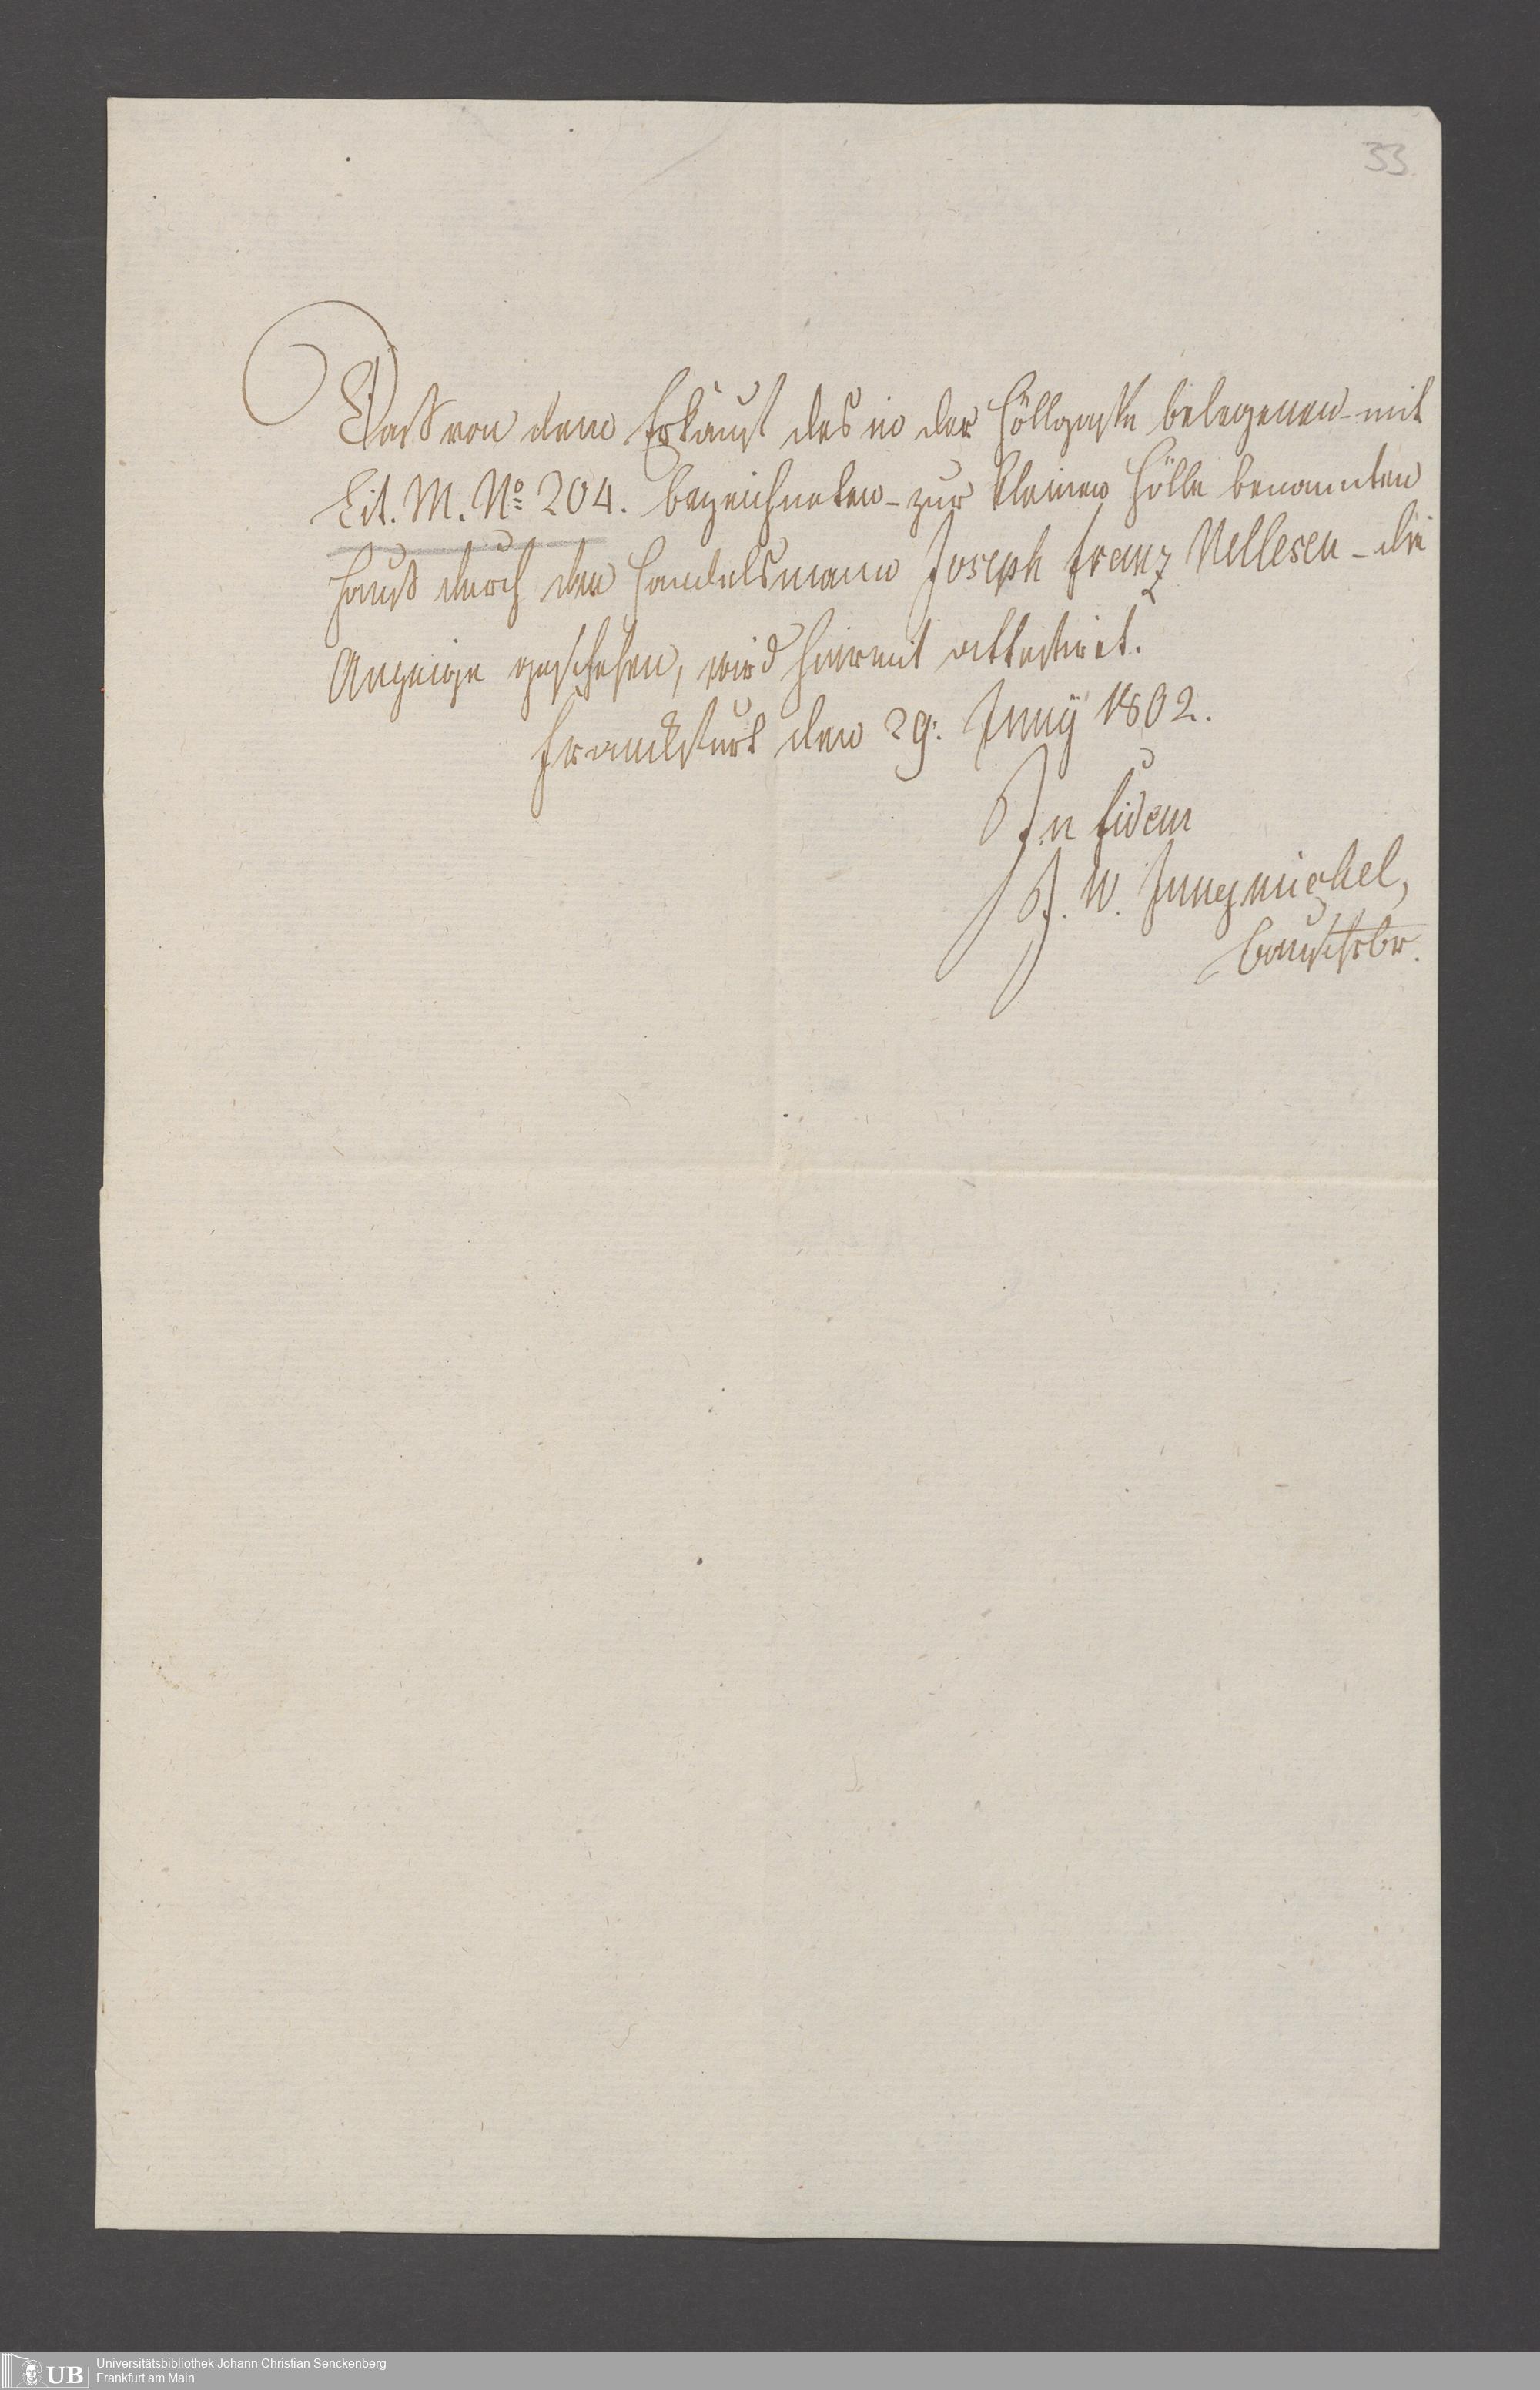 33
Daß von dem Erkauf des in der Höllgasse belegenen - mit
Lit. M. No 204. bezeichneten - zur kleinen Hölle benannten
Hauß durch den Handelsmann Joseph Franz Vellesen - die
Anzeige geschehen, wird hiermit attestiret.
Franckfurt den 29. Juny 1802.
In fidem
J. W. Jungmichel,
Bauschrbr.
UB
Universitätsbibliothek Johann Christian Senckenberg
Frankfurt am Main